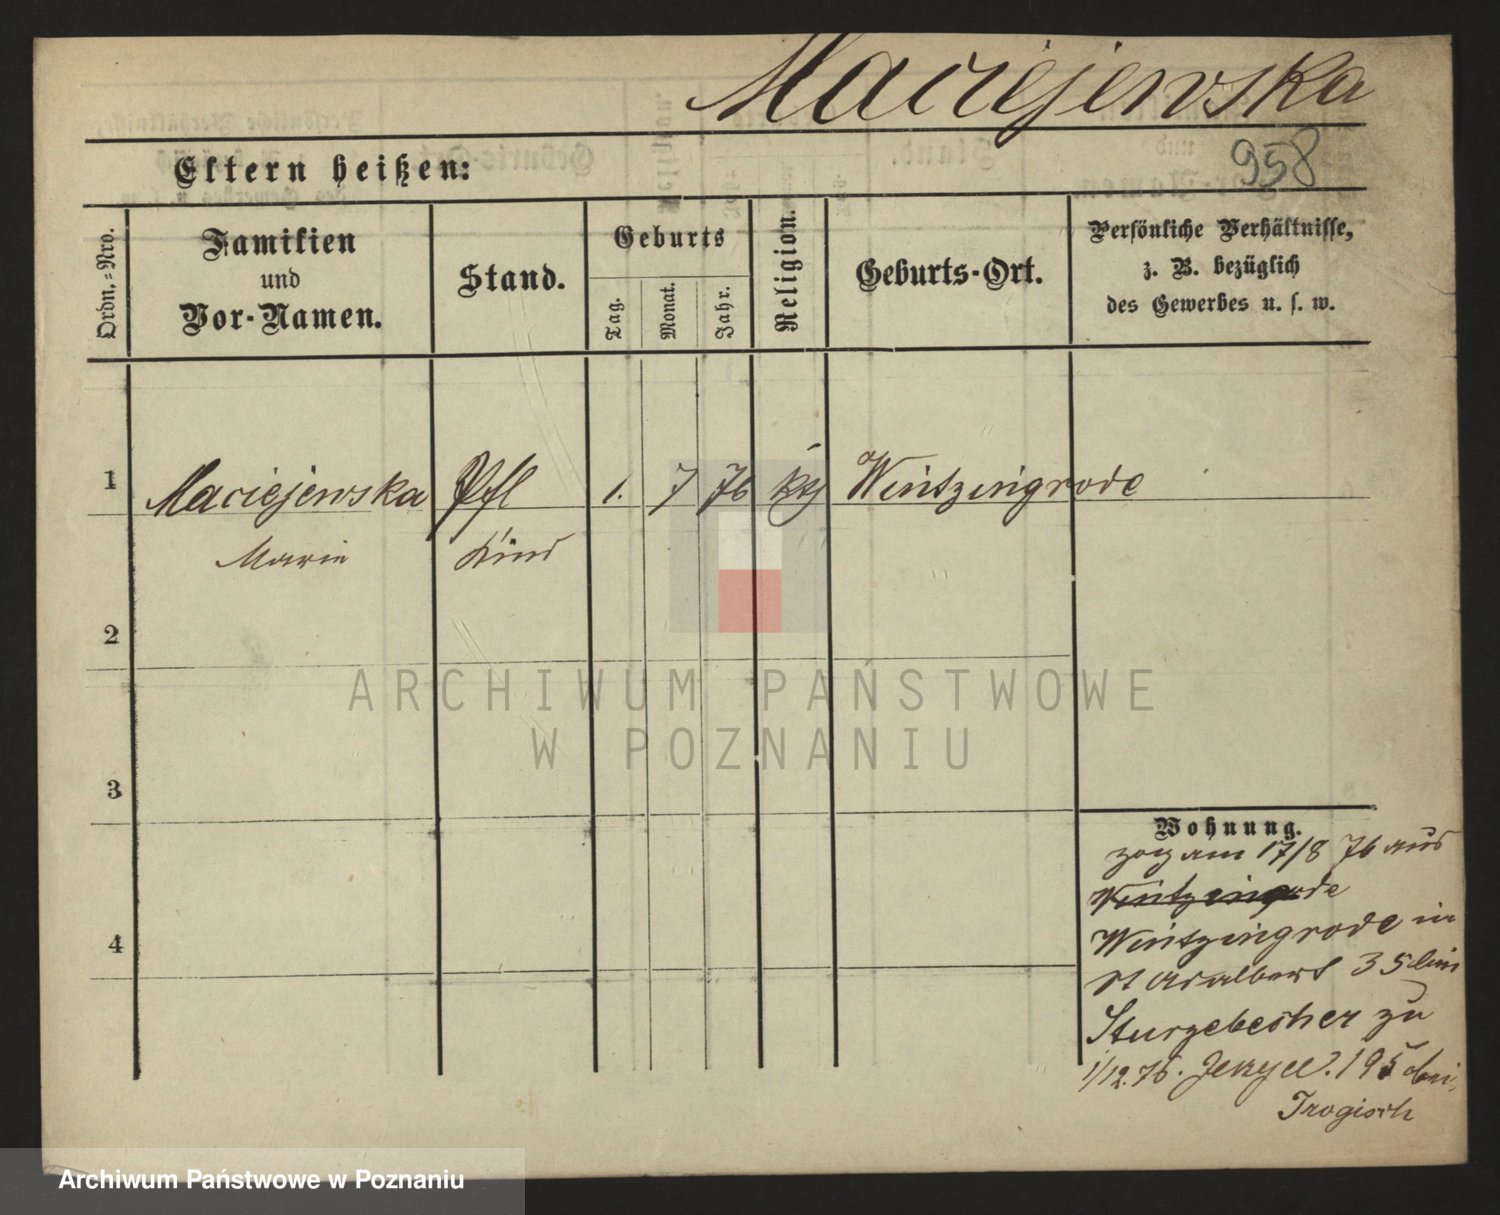 Maciejewska
958
Eltern heißen:
Ordn.-Nro.
Familien
und
Vor-Namen.
Stand.
Geburts
Tag.
Monat.
Jahr.
Religion.
Geburts-Ort.
Persönliche Verhältnisse,
z. B. bezüglich
des Gewerbes u. s. w.
1 Maciejewska Pfl 1. 7 76 kth Wintzingrode
Marie Kind
2
ARCHIWUM PAŃSTWOWE
W POZNANIU
3
Wohnung.
zog am 17/8 76 aus
Wintzingrode
4
Wintzingrode in
St Adalbert 35 bei
zu
1/12.76. 195 bei
Trogisch
Archiwum Państwowe w Poznaniu